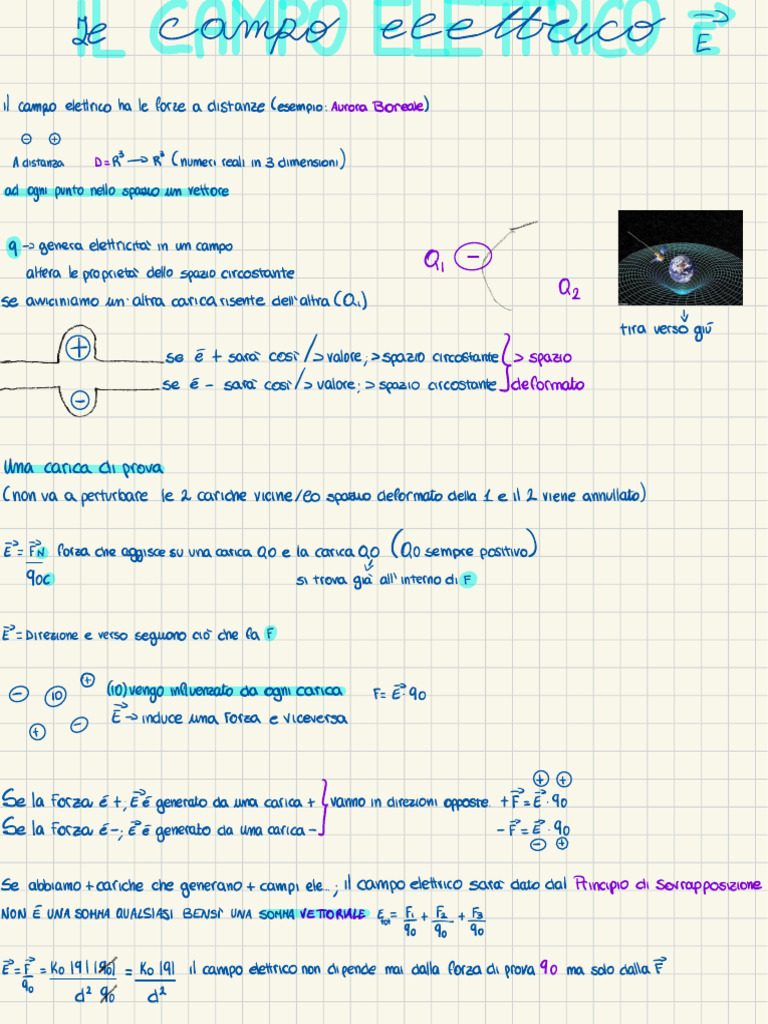 Il campo elettrico E
IL CAMPO ELETTRICO
il campo elettrico ha le forze a distanze (esempio: Aurora Boreale)
- +
A distanza D=R³→R³ (numeri reali in 3 dimensioni)
ad ogni punto nello spazio un vettore
q → genera elettricità in un campo
altera le proprietà dello spazio circostante
se avviciniamo un'altra carica risente dell'altra (Q₁)
Q₁ - Q₂
tira verso giú
+ se é + sarà così / > valore; > spazio circostante
- se é - sarà così / > valore; > spazio circostante
> spazio deformato
Una carica di prova
(non va a perturbare le 2 cariche vicine/lo spazio deformato della 1 e il 2 viene annullato)
E = F N / q0 C forza che aggisce su una carica Q0 e la carica Q0 (Q0 sempre positivo)
si trova già all'interno di F
E = Direzione e verso seguono ciò che fa F
- 10 + + - (10) vengo influenzato da ogni carica F = E · q0
E → induce una forza e viceversa
+ +
Se la forza é +; E é generato da una carica + vanno in direzioni opposte. + F = E · q0
Se la forza é -; E é generato da una carica - - F = E · q0
- +
Se abbiamo + cariche che generano + campi ele...; il campo elettrico sarà dato dal Principio di Sovrapposizione
NON É UNA SOMMA QUALSIASI BENSÌ UNA SOMMA VETTORIALE E tot = F₁/q0 + F₂/q0 + F₃/q0
E = F/q0 = K0 |q| |q0| / d² q0 = K0 |q| / d² il campo elettrico non dipende mai dalla forza di prova q0 ma solo dalla F